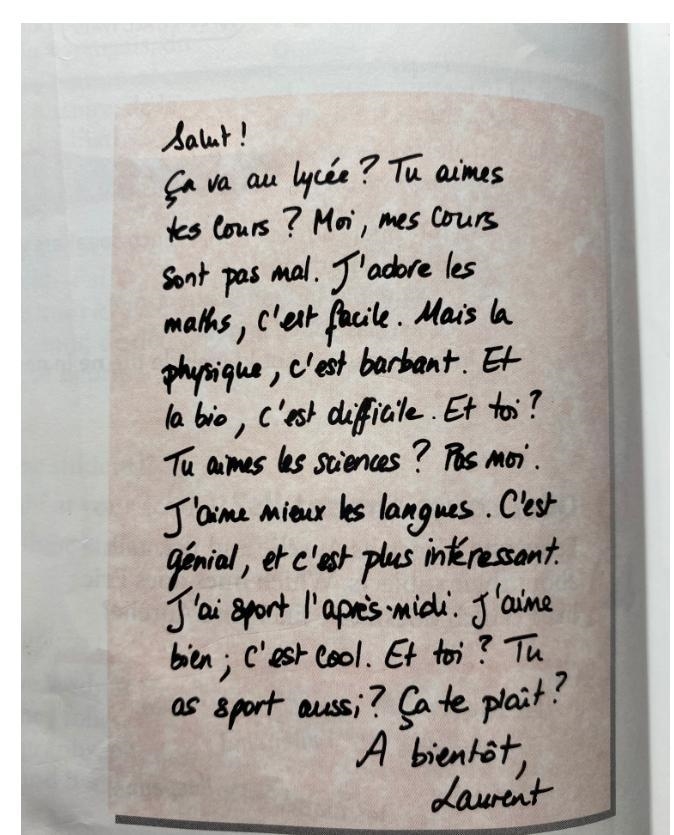 Salut !
Ça va au lycée ? Tu aimes
tes cours ? Moi, mes cours
sont pas mal. J'adore les
maths, c'est facile. Mais la
physique, c'est barbant. Et
la bio, c'est difficile. Et toi ?
Tu aimes les sciences ? Pas moi.
J'aime mieux les langues. C'est
génial, et c'est plus intéressant.
J'ai sport l'après-midi. J'aime
bien ; c'est cool. Et toi ? Tu
as sport aussi ? Ça te plaît ?
A bientôt,
Laurent